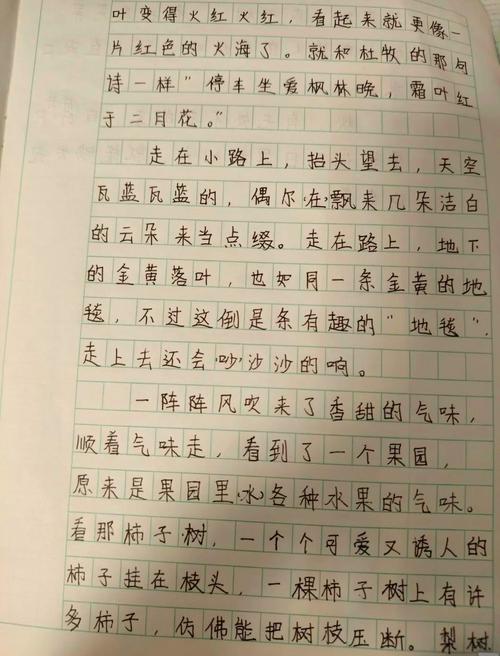 叶变得火红火红，看起来就更像一
片红色的火海了。就和杜牧的那句
诗一样"停车坐爱枫林晚，霜叶红
于二月花。"
走在小路上，抬头望去，天空
瓦蓝瓦蓝的，偶尔(在)飘来几朵洁白
的云朵来当点缀。走在路上，地下
的金黄落叶，也如同一条金黄的地
毯，不过这倒是条有趣的"地毯"，
走上去还会(吵)沙沙的响。
一阵阵风吹来了香甜的气味，
顺着气味走，看到了一个果园，
原来是果园里(水)各种水果的气味。
看那柿子树，一个个可爱又诱人的
柿子挂在枝头，一棵柿子树上有许
多柿子，仿佛能把树枝压断。梨树